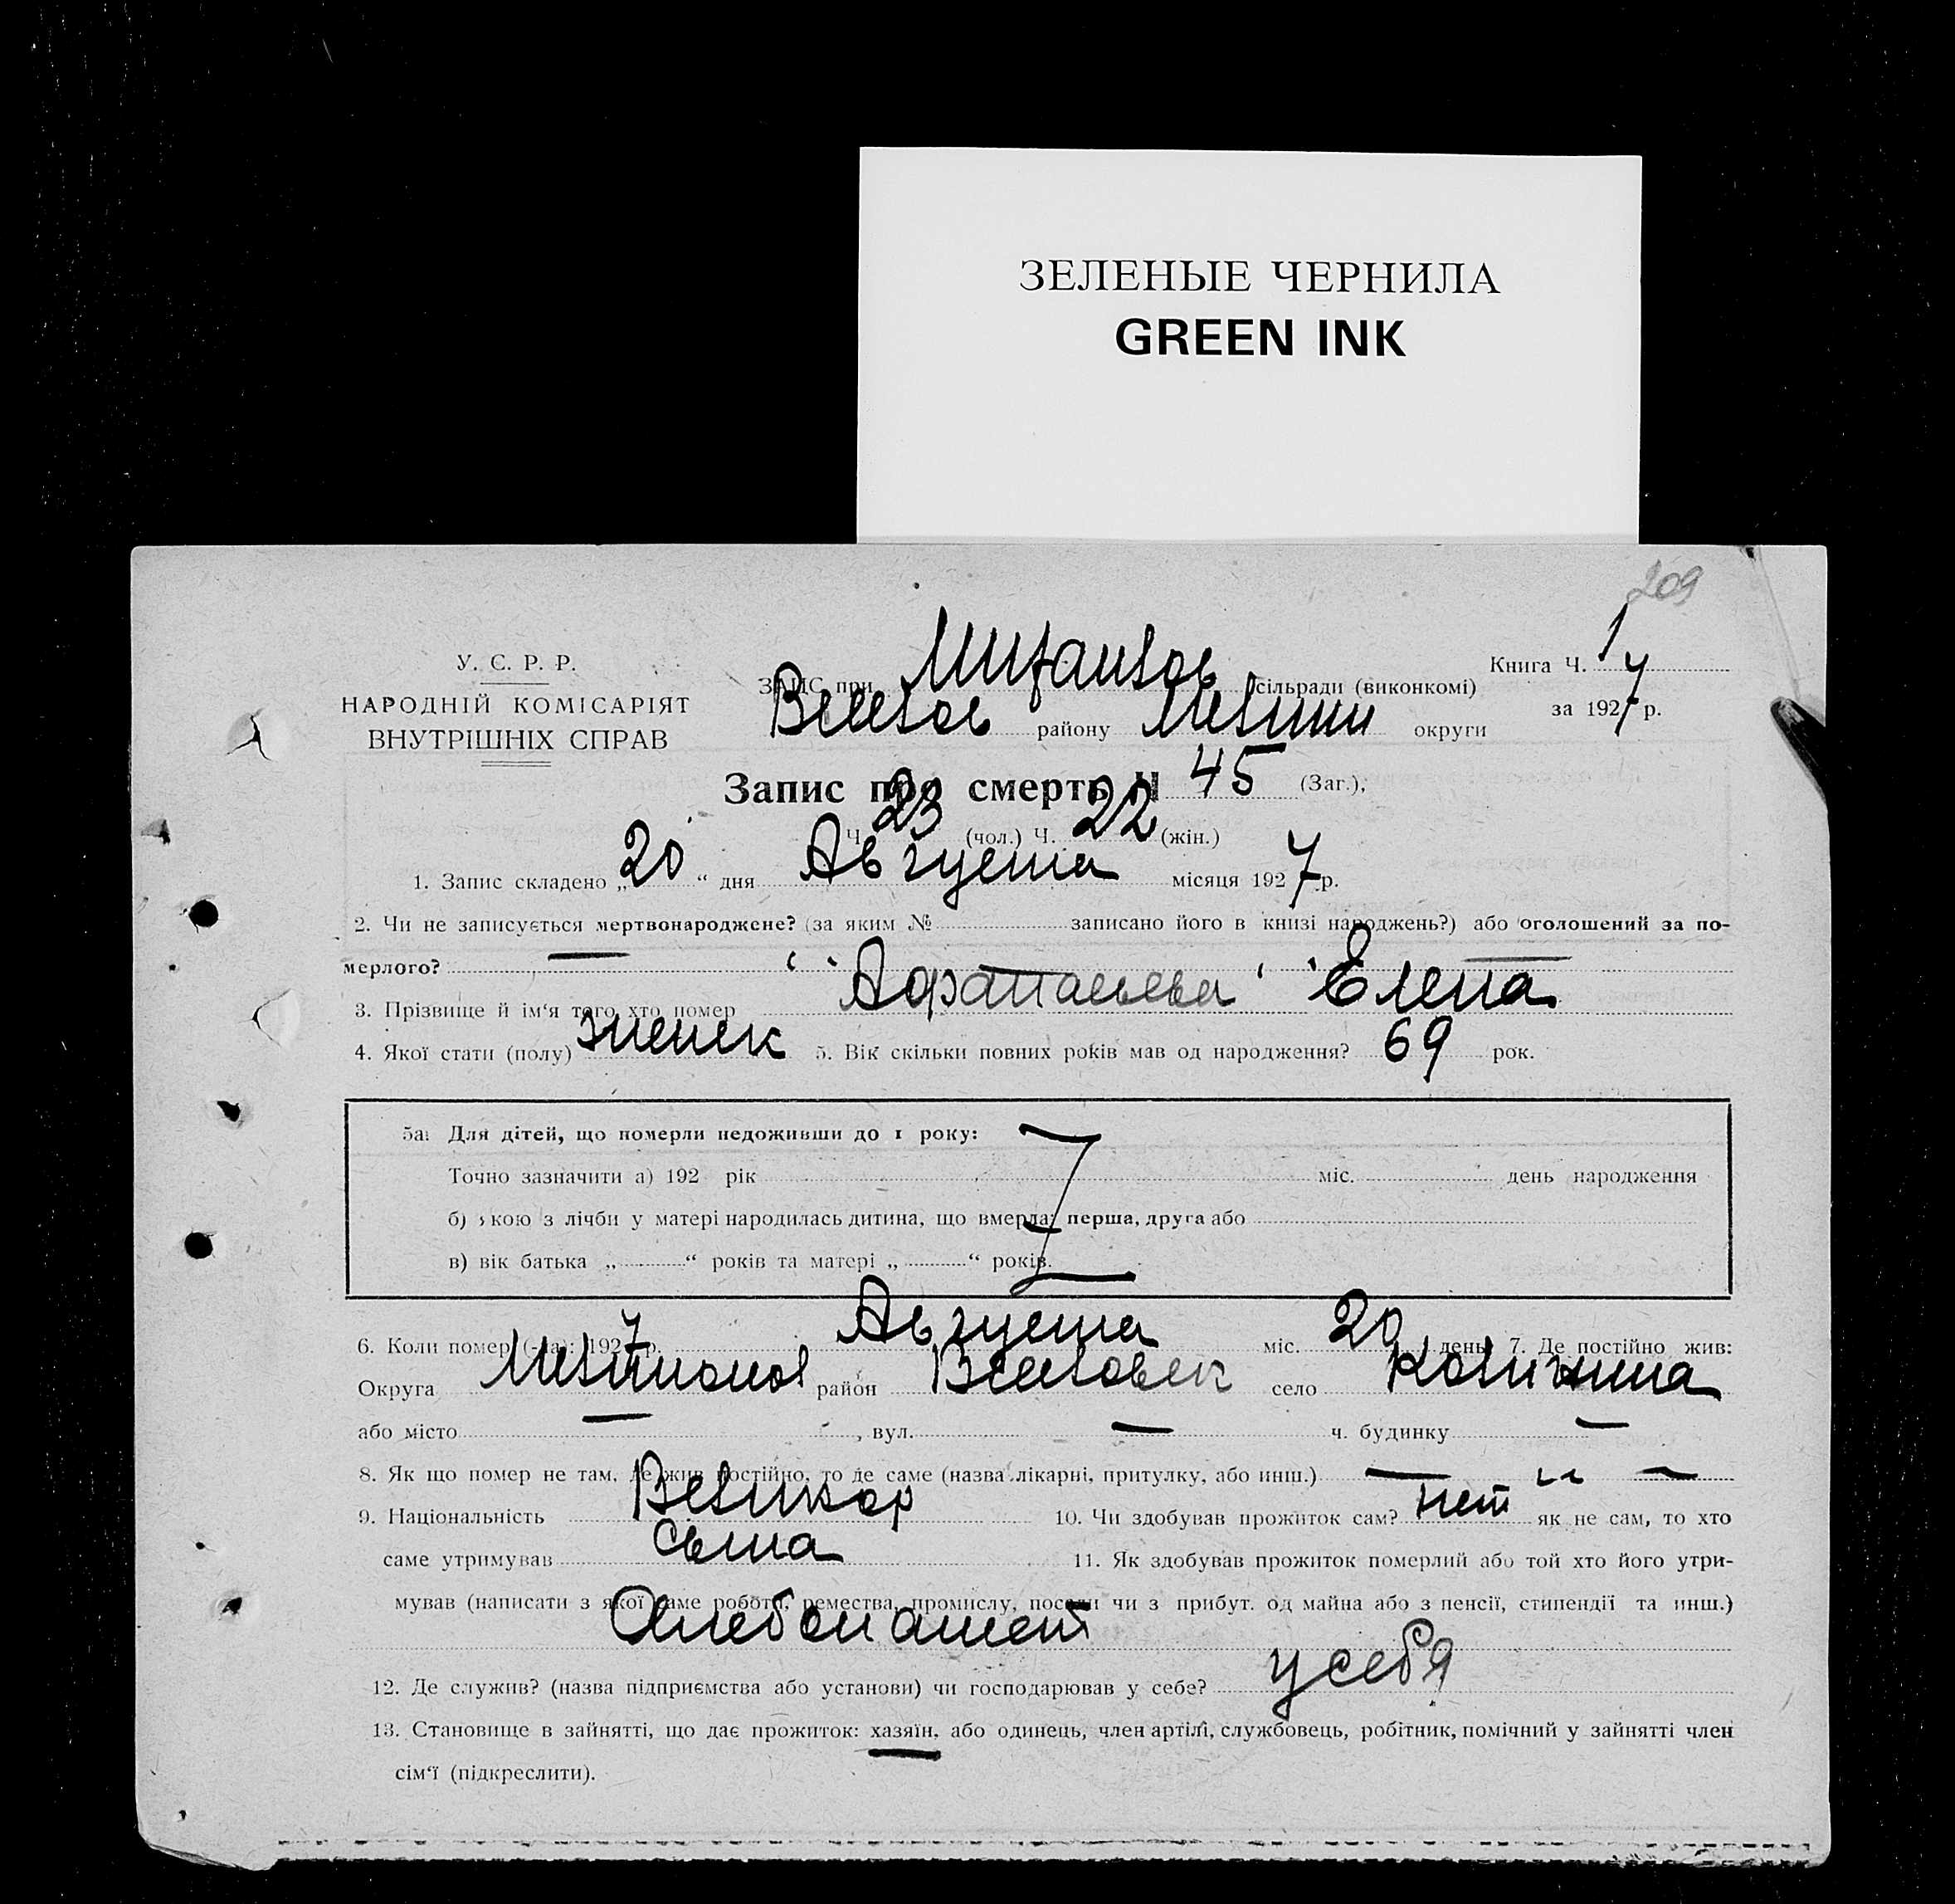 ЗЕЛЕНЫЕ ЧЕРНИЛА
GREEN INK
209
У. С. Р. Р.
НАРОДНІЙ КОМІСАРІЯТ
ВНУТРІШНІХ СПРАВ
ЗАГС при сільради (виконкомі)
району округи
Книга Ч. 1
за 1927 р.
Запис про смерть Ч 45 (Заг.),
Ч. 23 (чол.) Ч. 22 (жін.)
1. Запис складено „20“ дня Августа місяця 1927 р.
2. Чи не записується мертвонароджене? (за яким № записано його в книзі народжень?) або оголошений за по-
мерлого? —
3. Прізвище й ім‘я того хто помер Афанасьева Елена
4. Якої стати (полу) женск 5. Вік скільки повних років мав од народження? 69 рок.
5а: Для дітей, що померли недоживши до 1 року:
Точно зазначити а) 192 рік міс. день народження
б) якою з лічби у матері народилась дитина, що вмерла: перша, друга або
в) вік батька „ “ років та матері „ “ років.
6. Коли помер (-ла): 1927 р. Августа міс. 20 день 7. Де постійно жив:
Округа район село
або місто — , вул. — ч. будинку —
8. Як що помер не там, де жив постійно, то де саме (назва лікарні, притулку, або инш.) — „ —
9. Національність Великор 10. Чи здобував прожиток сам? нет як не сам, то хто
саме утримував сына 11. Як здобував прожиток померлий або той хто його утри-
мував (написати з якої саме роботи, ремества, промислу, посади чи з прибут. од майна або з пенсії, стипендії та инш.)
Хлебопашест
12. Де служив? (назва підприємства або установи) чи господарював у себе? у себя
13. Становище в зайнятті, що дає прожиток: хазяїн, або одинець, член артілі, службовець, робітник, помічний у зайнятті член
сім‘ї (підкреслити).